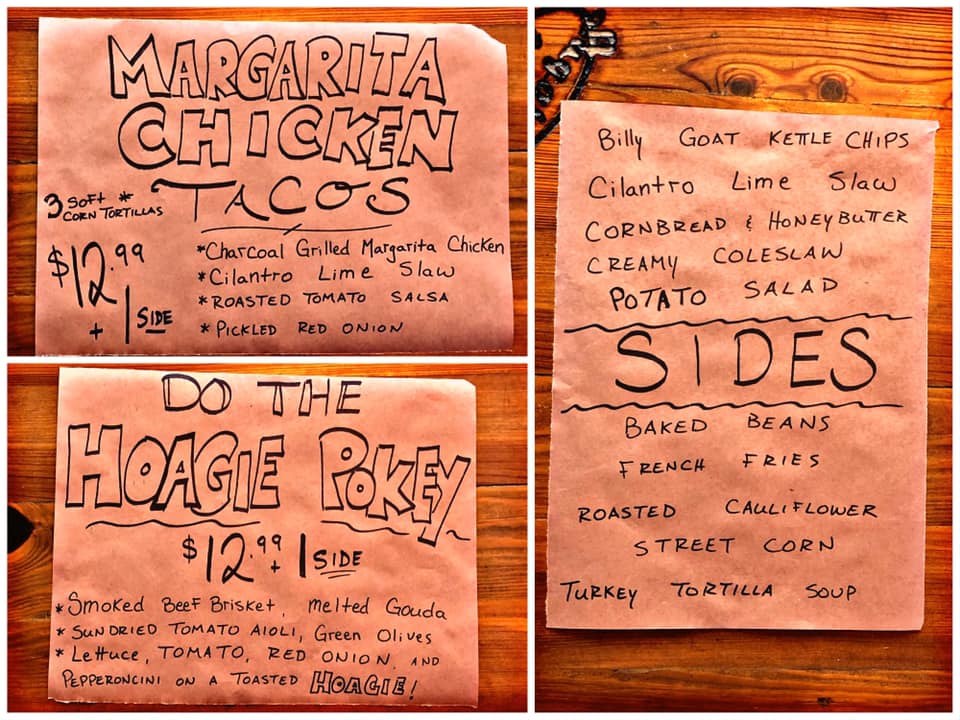 MARGARITA
CHICKEN
TACOS
3 SOFT *
CORN TORTILLAS
$12.99
+ 1 SIDE
*Charcoal Grilled Margarita Chicken
*Cilantro Lime Slaw
*ROASTED TOMATO SALSA
*PICKLED RED ONION
DO THE
HOAGIE POKEY
$12.99 + 1 SIDE
*Smoked Beef Brisket, melted Gouda
*SUNDRIED TOMATO AIOLI, Green Olives
*Lettuce, TOMATO, RED ONION, AND
PEPPERONCINI ON A TOASTED HOAGIE!
Billy GOAT KETTLE CHIPS
Cilantro Lime Slaw
CORNBREAD & HONEYBUTTER
CREAMY COLESLAW
POTATO SALAD
SIDES
BAKED BEANS
FRENCH FRIES
ROASTED CAULIFLOWER
STREET CORN
TURKEY TORTILLA SOUP